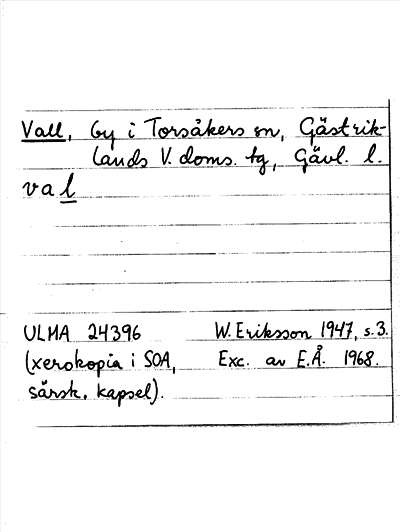 Vall, by i Torsåkers sn, Gästrik-
lands V. doms. tg, Gävl. l.
val
ULMA 24396 W. Eriksson 1947, s.3.
(xerokopia i SOA, Exc. av E.Å. 1968.
särsk. kapsel).